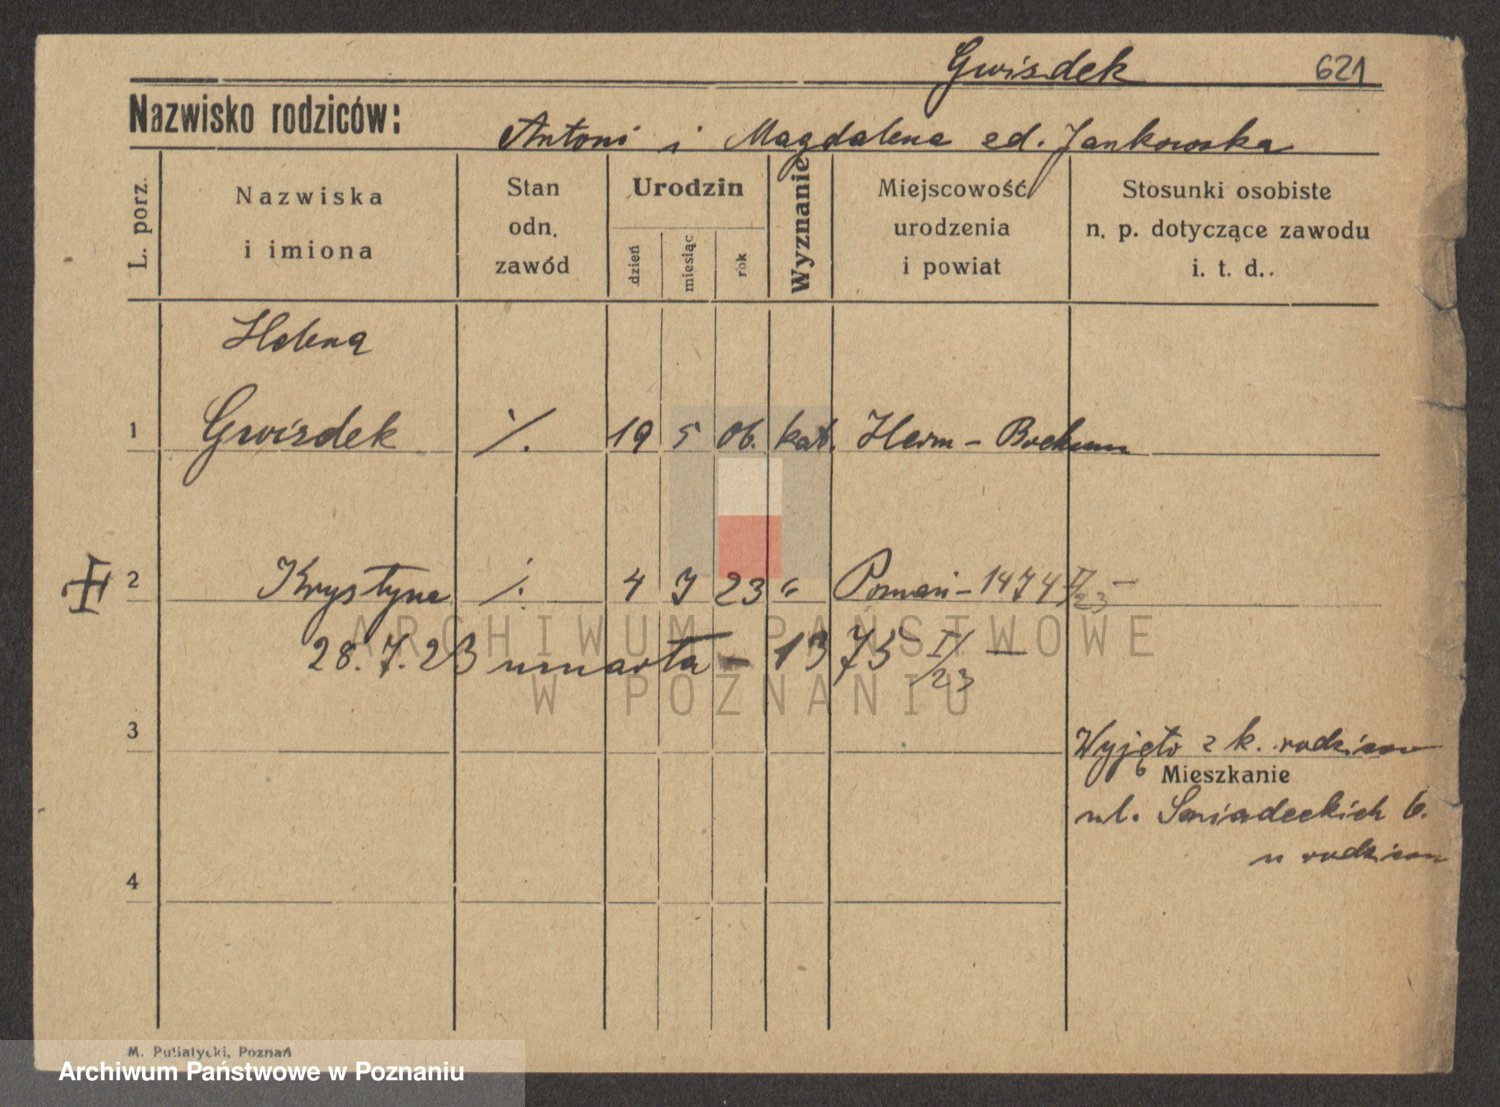 Gwizdek 621
Nazwisko rodziców:
Antoni i Magdalena Jankowska
L. porz.
Nazwiska
i imiona
Stan
odn.
zawód
Urodzin
dzień
miesiąc
rok
Wyznanie
Miejscowość
urodzenia
i powiat
Stosunki osobiste
n. p. dotyczące zawodu
i. t. d..
Helena
1 Gwizdek ·/. 19 5 06. kat. Herne - Bochum
2 Krystyna ·/. 4 7 23 " Poznań - 1474 II/23 -
28.7.23 umarła - 1375 I/23 -
3
Wyjęto z k. rodziców
Mieszkanie
ul. Śniadeckich 6.
u rodziców
4
M. Putiatycki, Poznań
ARCHIWUM PAŃSTWOWE
W POZNANIU
Archiwum Państwowe w Poznaniu